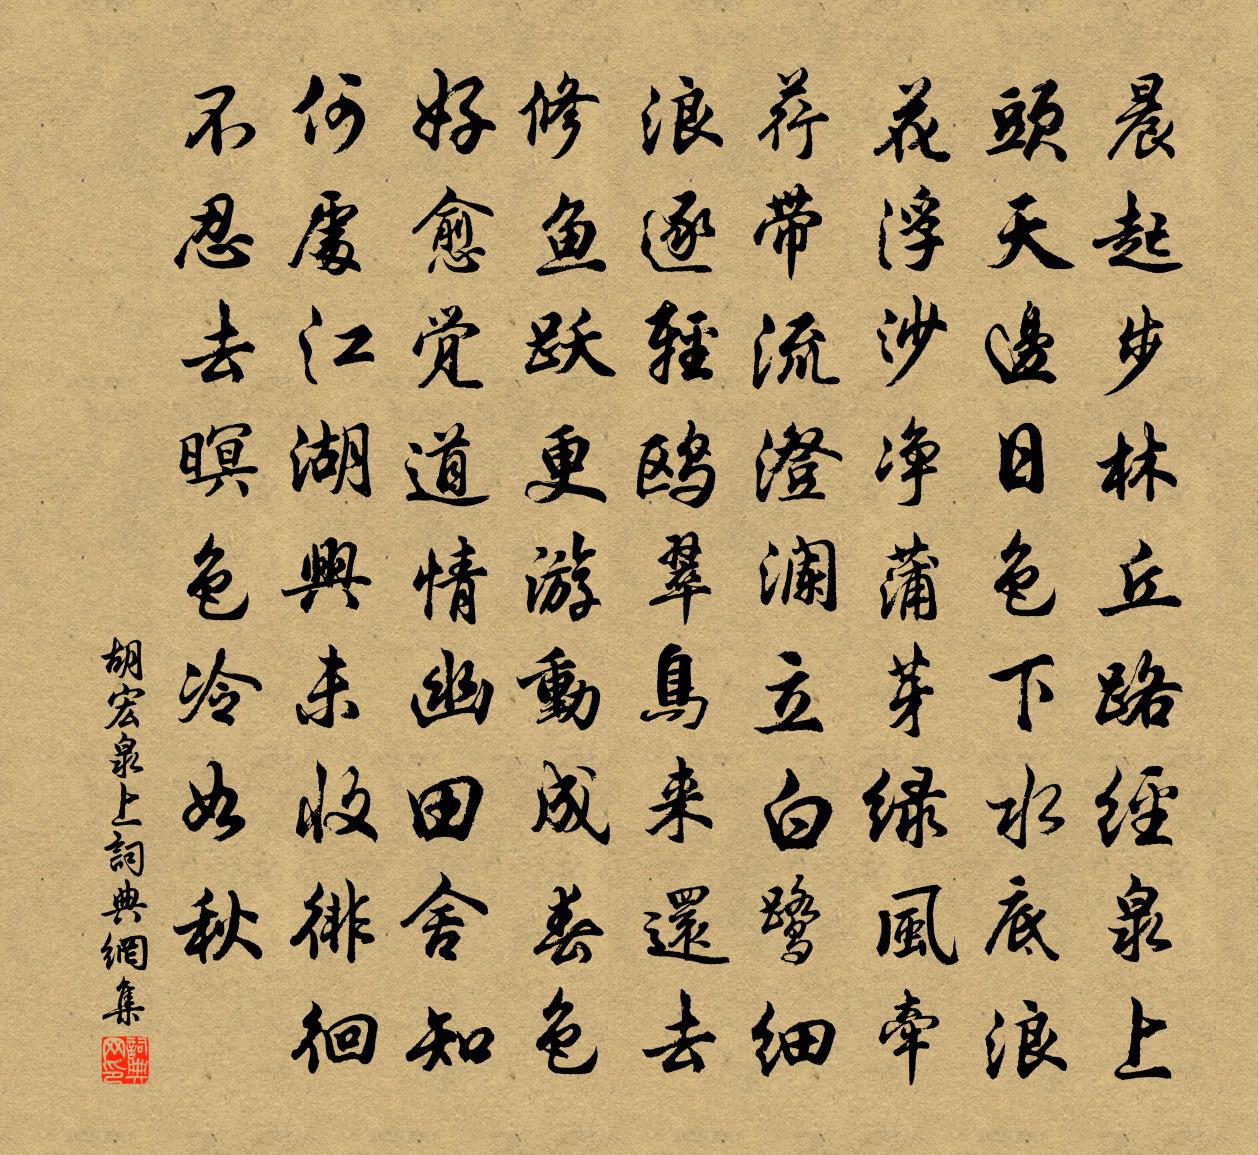 晨起步林丘路經泉上
頭天邊日色下水底浪
花浮沙净蒲芽緑風牽
荇带流澄澜立白鹭细
浪逐輕鸥翠鳥来還去
修鱼跃更游動成春色
好愈觉道情幽田舍知
何處江湖興未收徘徊
不忍去暝色冷如秋
胡宏泉上詞典網集
詞典网印